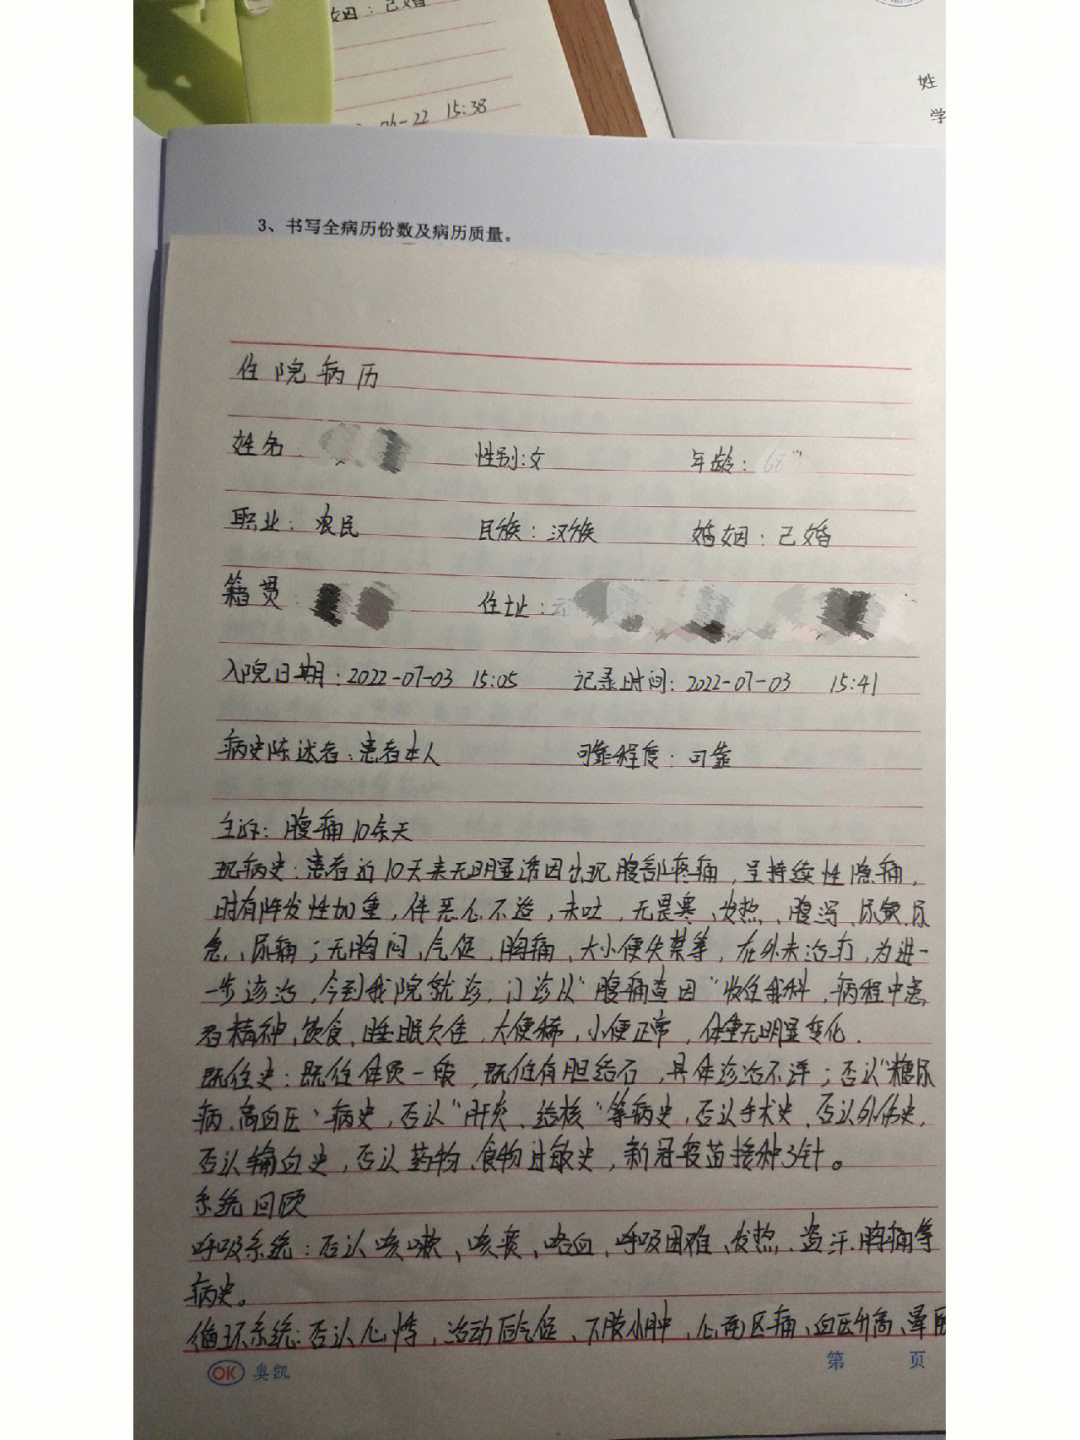 婚姻：已婚
06-22 15:38
姓
学
3、书写全病历份数及病历质量。
住院病历
姓名： 性别:女 年龄：
职业：农民 民族：汉族 婚姻：已婚
籍贯： 住址：云
入院日期：2022-07-03 15:05 记录时间：2022-07-03 15:41
病史陈述者：患者本人 可靠程度：可靠
主诉：腹痛10余天
现病史：患者近10天来无明显诱因出现腹部疼痛，呈持续性隐痛，
时有阵发性加重，伴恶心不适，未吐，无畏寒、发热、腹泻、尿频、尿
急、尿痛；无胸闷、气促、胸痛、大小便失禁等，在外未治疗，为进一
步诊治，今到我院就诊，门诊以“腹痛查因”收住我科，病程中患
者精神、饮食、睡眠欠佳，大便稀，小便正常，体重无明显变化.
既往史：既往体质一般，既往有胆结石，具体诊治不详；否认“糖尿
病、高血压”病史，否认“肝炎、结核”等病史，否认手术史、否认外伤史，
否认输血史，否认药物、食物过敏史，新冠疫苗接种3针。
系统回顾
呼吸系统：否认咳嗽、咳痰、咯血、呼吸困难、发热、盗汗、胸痛等
病史。
循环系统：否认心悸，活动后气促、下肢水肿、心前区痛、血压升高、晕厥
OK 奥凯 第 页